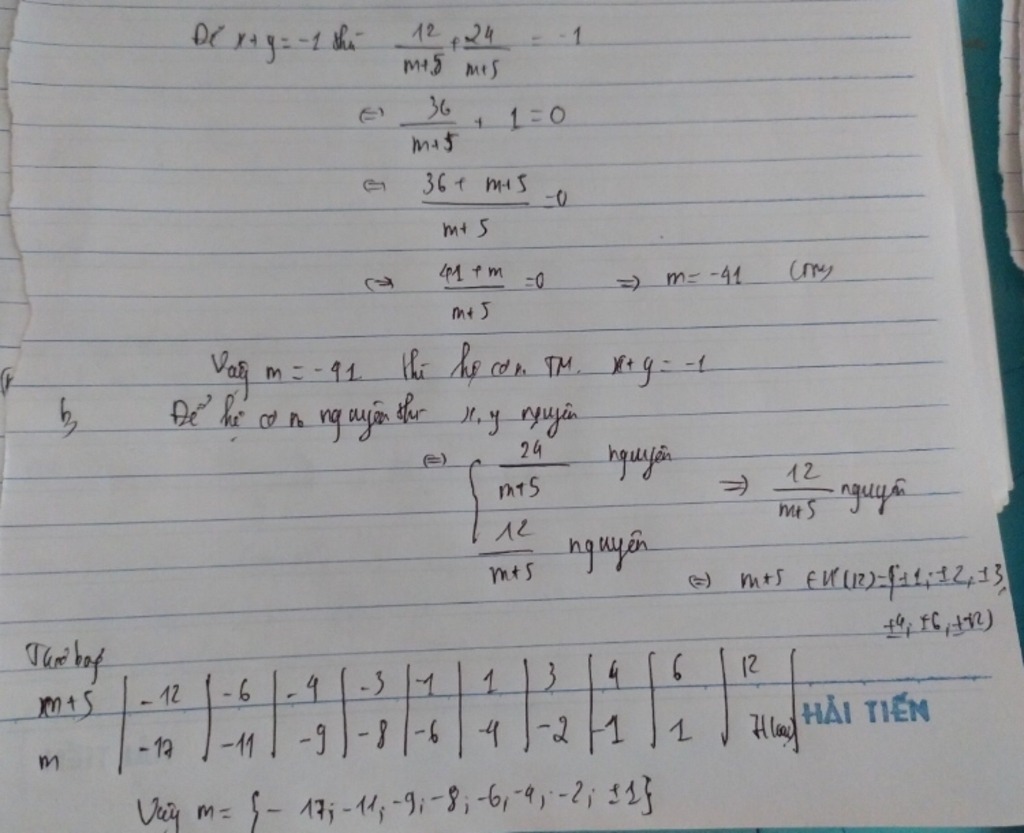 Để x+y=-1 thì 12/m+5 + 24/m+5 = -1
⇔ 36/m+5 + 1=0
⇔ 36+ m+5/m+5 =0
⇔ 41+m/m+5 =0 ⇒ m=-41 (TM)
Vậy m=-41 thì hệ có n. TM. x+y=-1
b, Để hệ có n nguyên thì x, y nguyên
⇔ { 24/m+5 nguyên ⇒ 12/m+5 nguyên
12/m+5 nguyên
⇔ m+5 ∈ Ư(12)={±1; ±2, ±3,
±4; ±6, ±12}
Ta có bảng
m+5 | -12 | -6 | -4 | -3 | -1 | 1 | 3 | 4 | 6 | 12 |
HẢI TIẾN
m | -17 | -11 | -9 | -8 | -6 | -4 | -2 | -1 | 1 | 7(loại)
Vậy m= {-17; -11; -9; -8; -6, -4, -2; ±1}